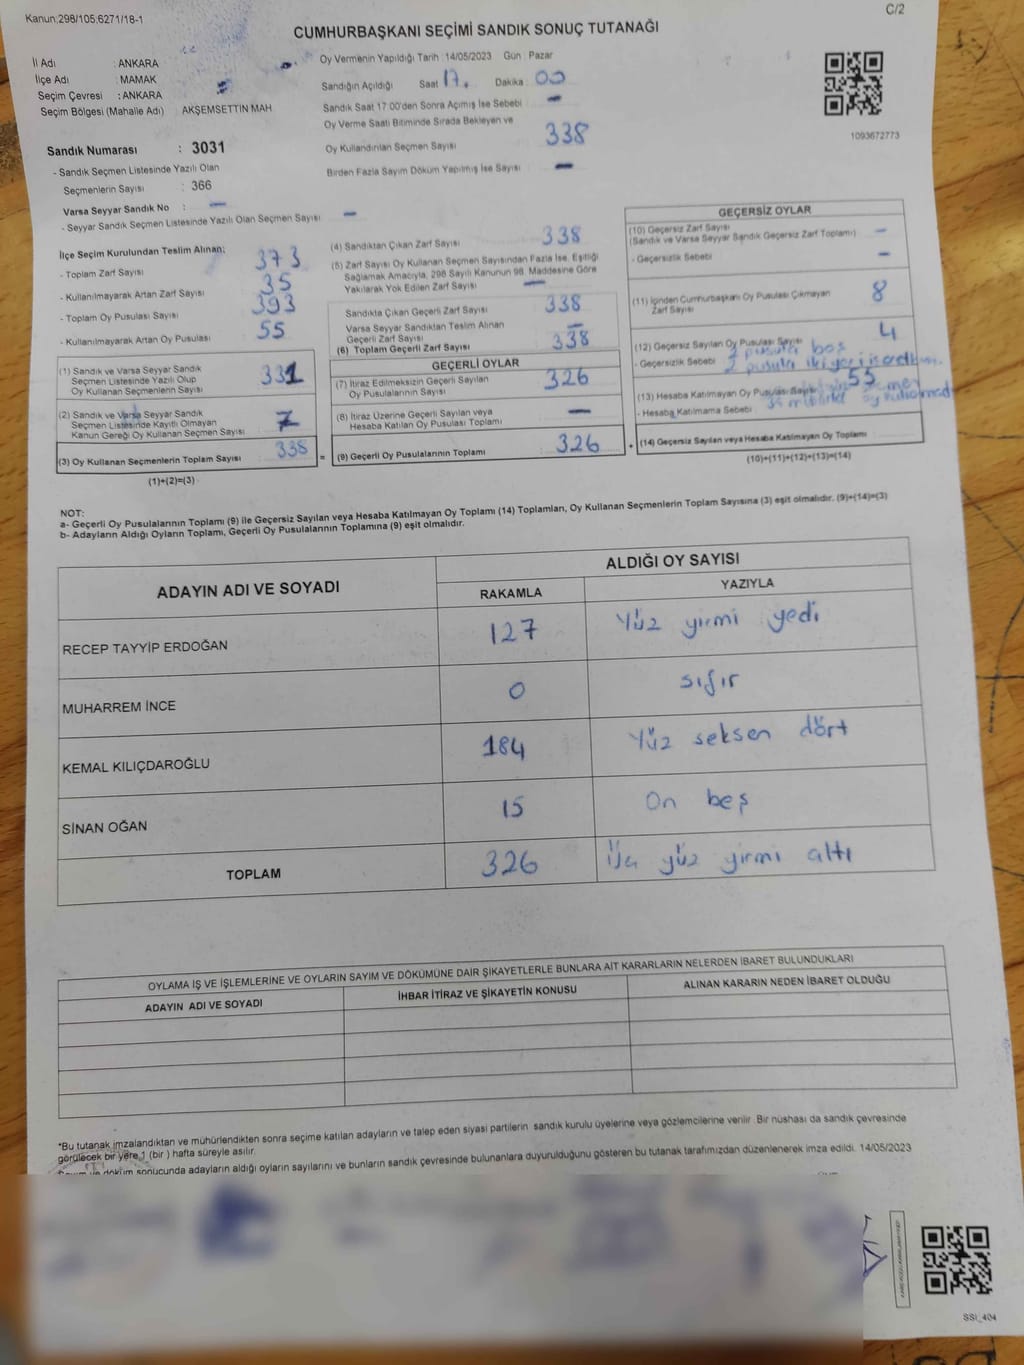 Kanun:298/105;6271/18-1
C/2
CUMHURBAŞKANI SEÇİMİ SANDIK SONUÇ TUTANAĞI
İl Adı : ANKARA
İlçe Adı : MAMAK
Seçim Çevresi : ANKARA
Seçim Bölgesi (Mahalle Adı) AKŞEMSETTIN MAH
Sandık Numarası : 3031
- Sandık Seçmen Listesinde Yazılı Olan
Seçmenlerin Sayısı : 366
Varsa Seyyar Sandık No : -
- Seyyar Sandık Seçmen Listesinde Yazılı Olan Seçmen Sayısı -
Oy Vermenin Yapıldığı Tarih : 14/05/2023 Gün : Pazar
Sandığın Açıldığı Saat 17. Dakika : 00
Sandık Saat 17:00'den Sonra Açılmış İse Sebebi -
Oy Verme Saati Bitiminde Sırada Bekleyen ve
Oy Kullandırılan Seçmen Sayısı 338
Birden Fazla Sayım Döküm Yapılmış İse Sayısı -
1093672773
İlçe Seçim Kurulundan Teslim Alınan:
- Toplam Zarf Sayısı 373
- Kullanılmayarak Artan Zarf Sayısı 35
- Toplam Oy Pusulası Sayısı 393
- Kullanılmayarak Artan Oy Pusulası 55
(1) Sandık ve Varsa Seyyar Sandık
Seçmen Listesinde Yazılı Olup
Oy Kullanan Seçmenlerin Sayısı 331
(2) Sandık ve Varsa Seyyar Sandık
Seçmen Listesinde Kayıtlı Olmayan
Kanun Gereği Oy Kullanan Seçmen Sayısı 7
(3) Oy Kullanan Seçmenlerin Toplam Sayısı 338 =
(1)+(2)=(3)
(4) Sandıktan Çıkan Zarf Sayısı 338
(5) Zarf Sayısı Oy Kullanan Seçmen Sayısından Fazla İse, Eşitliği
Sağlamak Amacıyla, 298 Sayılı Kanunun 98. Maddesine Göre
Yakılarak Yok Edilen Zarf Sayısı -
Sandıkta Çıkan Geçerli Zarf Sayısı 338
Varsa Seyyar Sandıktan Teslim Alınan
Geçerli Zarf Sayısı -
(6) Toplam Geçerli Zarf Sayısı 338
GEÇERLİ OYLAR
(7) İtiraz Edilmeksizin Geçerli Sayılan
Oy Pusulalarının Sayısı 326
(8) İtiraz Üzerine Geçerli Sayılan veya
Hesaba Katılan Oy Pusulası Toplamı -
(9) Geçerli Oy Pusulalarının Toplamı 326 +
GEÇERSİZ OYLAR
(10) Geçersiz Zarf Sayısı
(Sandık ve Varsa Seyyar Sandık Geçersiz Zarf Toplamı) -
- Geçersizlik Sebebi -
(11) İçinden Cumhurbaşkanı Oy Pusulası Çıkmayan
Zarf Sayısı 8
(12) Geçersiz Sayılan Oy Pusulası Sayısı 4
2 pusula boş
- Geçersizlik Sebebi 2 pusula iki yeri
(13) Hesaba Katılmayan Oy Pusulası Sayısı 55
- Hesaba Katılmama Sebebi
(14) Geçersiz Sayılan veya Hesaba Katılmayan Oy Toplamı
(10)+(11)+(12)+(13)=(14)
NOT:
a- Geçerli Oy Pusulalarının Toplamı (9) ile Geçersiz Sayılan veya Hesaba Katılmayan Oy Toplamı (14) Toplamları, Oy Kullanan Seçmenlerin Toplam Sayısına (3) eşit olmalıdır. (9)+(14)=(3)
b- Adayların Aldığı Oyların Toplamı, Geçerli Oy Pusulalarının Toplamına (9) eşit olmalıdır.
ADAYIN ADI VE SOYADI ALDIĞI OY SAYISI
RAKAMLA YAZIYLA
RECEP TAYYİP ERDOĞAN 127 Yüz yirmi yedi
MUHARREM İNCE 0 sıfır
KEMAL KILIÇDAROĞLU 184 Yüz seksen dört
SİNAN OĞAN 15 On beş
TOPLAM 326 Üç yüz yirmi altı
OYLAMA İŞ VE İŞLEMLERİNE VE OYLARIN SAYIM VE DÖKÜMÜNE DAİR ŞİKAYETLERLE BUNLARA AİT KARARLARIN NELERDEN İBARET BULUNDUKLARI
ADAYIN ADI VE SOYADI İHBAR İTİRAZ VE ŞİKAYETİN KONUSU ALINAN KARARIN NEDEN İBARET OLDUĞU
*Bu tutanak imzalandıktan ve mühürlendikten sonra seçime katılan adayların ve talep eden siyasi partilerin sandık kurulu üyelerine veya gözlemcilerine verilir. Bir nüshası da sandık çevresinde
görülecek bir yere 1 (bir) hafta süreyle asılır.
döküm sonucunda adayların aldığı oyların sayılarını ve bunların sandık çevresinde bulunanlara duyurulduğunu gösteren bu tutanak tarafımızdan düzenlenerek imza edildi. 14/05/2023
SSI_404